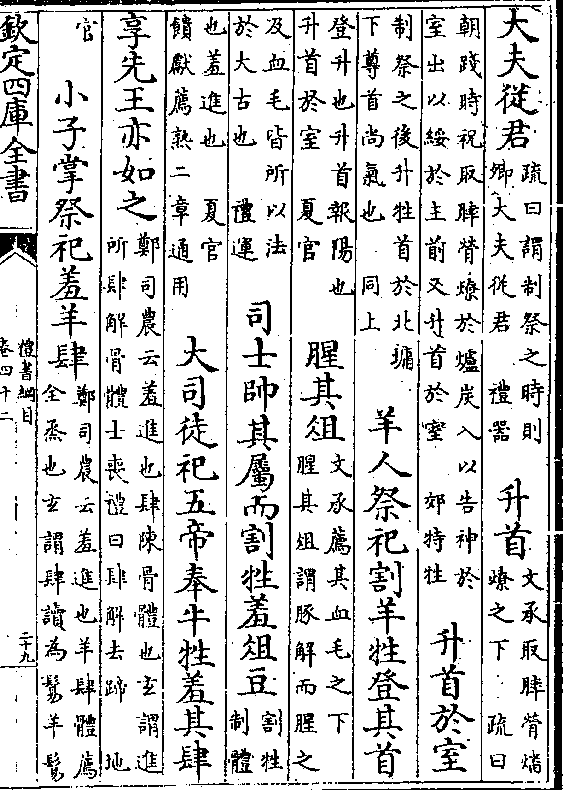 大夫從君疏曰謂制祭之時則卿大夫從君 禮器 升首文承取膟膋燔燎之下 疏曰
朝踐時祝取膟膋燎於爐炭入以告神於室出以綏於主前又升首於室 郊特牲 升首於室
制祭之後升牲首於北墉下尊首尚氣也 同上 羊人祭祀割羊牲登其首
登升也升首報陽也升首於室 夏官 腥其俎文承薦其血毛之下腥其俎謂豚解而腥之
及血毛皆所以法於大古也 禮運 司士帥其屬而割牲羞俎豆割牲制體
也羞進也 夏官饋獻薦熟二章通用 大司徒祀五帝奉牛牲羞其肆
享先王亦如之鄭司農云羞進也肆陳骨體也玄謂進所肆解骨體士喪禮曰肆解去蹄 地
官 小子掌祭祀羞羊肆鄭司農云羞進也羊肆體薦全烝也玄謂肆讀為鬄羊鬄
欽定四庫全書
禮書綱目
卷四十二
二十九